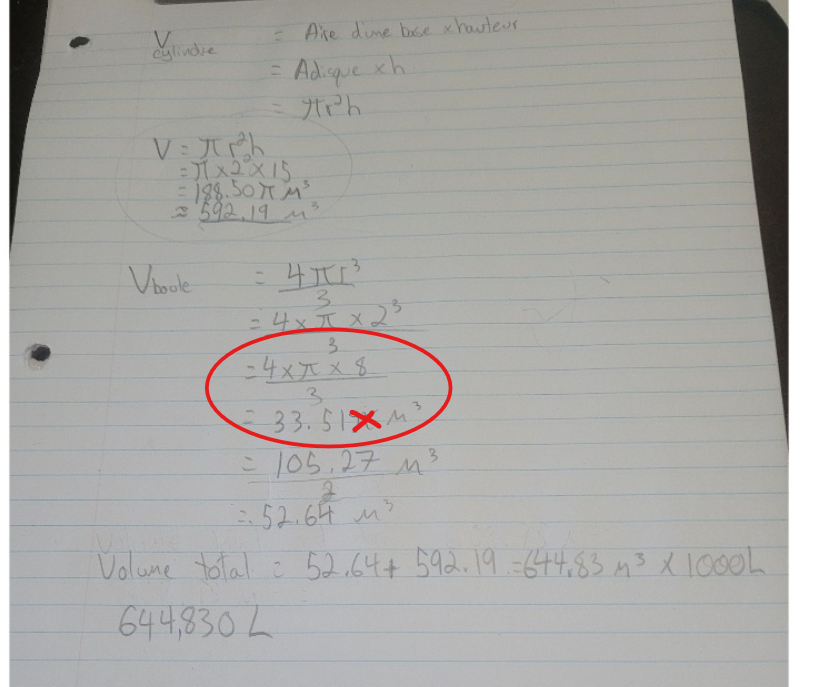 V cylindre = Aire d'une base x hauteur
= Adisque x h
= πr²h
V = πr²h
= π x 2² x 15
= 188.50π M³
≈ 592.19 M³
Vboule = 4πr³
3
= 4 x π x 2³
3
= 4 x π x 8
3
= 33.51π M³
= 105.27 M³
2
= 52.64 M³
Volume total = 52.64 + 592.19 = 644,83 M³ x 1000L
644,830 L